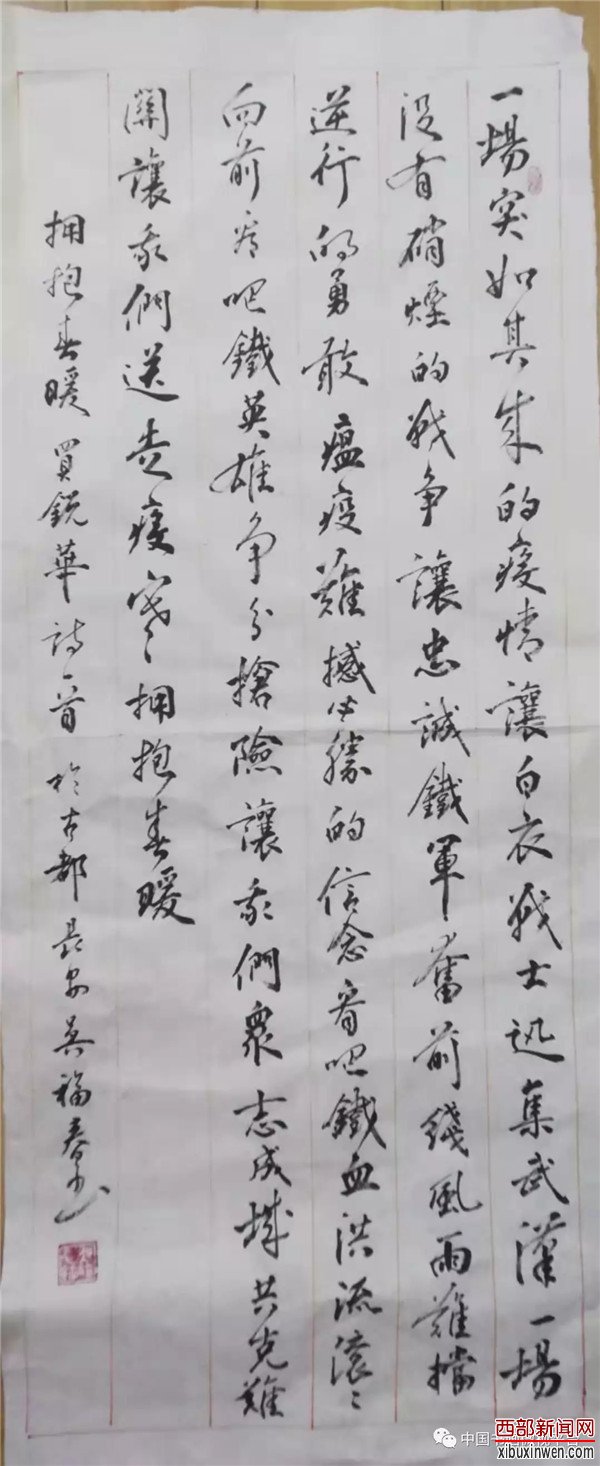 一場突如其来的疫情讓白衣战士迅集武漢一場
没有硝煙的战争讓忠誠鐵軍奮前綫風雨難擋
逆行的勇敢瘟疫難撼必勝的信念看吧鐵血洪流滚〻
向前看吧鐵英雄争分搶險讓我們衆志成城共克難
關讓我們送走疫寒〻拥抱春暖
拥抱春暖 買銳華詩一首 於古都長安吴福春书
中国书
西部新闻网
xibuxinwen.com